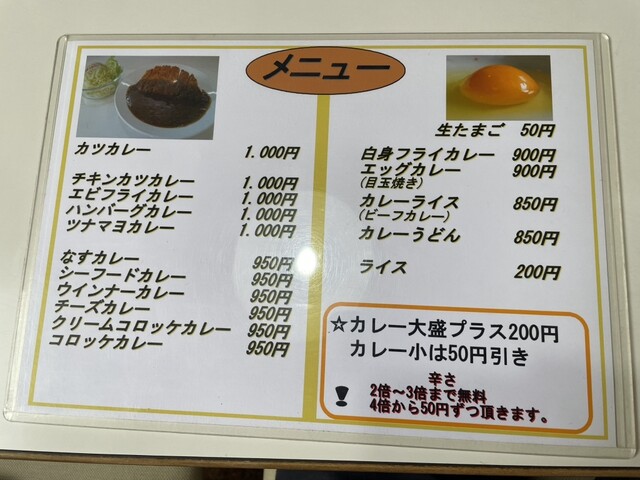 メニュー
カツカレー 1.000円
チキンカツカレー 1.000円
エビフライカレー 1.000円
ハンバーグカレー 1.000円
ツナマヨカレー 1.000円
なすカレー 950円
シーフードカレー 950円
ウインナーカレー 950円
チーズカレー 950円
クリームコロッケカレー 950円
コロッケカレー 950円
生たまご 50円
白身フライカレー 900円
エッグカレー 900円
(目玉焼き)
カレーライス 850円
(ビーフカレー)
カレーうどん 850円
ライス 200円
☆カレー大盛プラス200円
カレー小は50円引き
辛さ
2倍～3倍まで無料
4倍から50円ずつ頂きます。